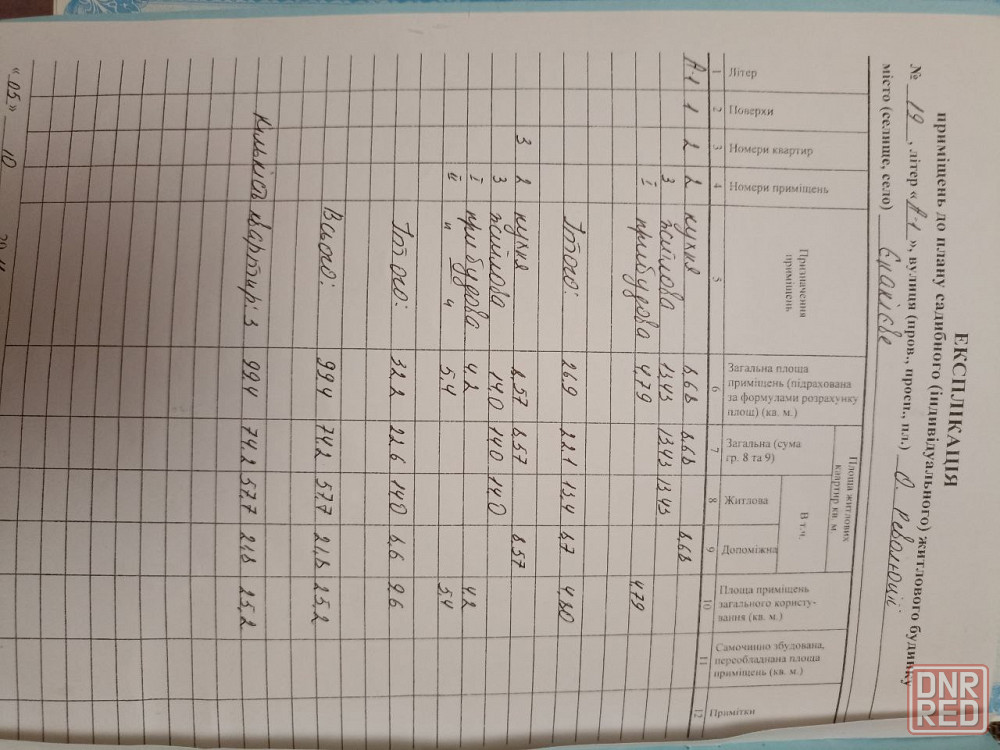 ЕКСПЛІКАЦІЯ
приміщень до плану садибного (індивідуального) житлового будинку
№ 19, літер «А-1», вулиця (пров., просп., пл.) О. Революції
місто (селище, село) Єнакієве
Літер
Поверхи
Номери квартир
Номери приміщень
Призначення приміщень
Загальна площа приміщень (підрахована за формулами розрахунку площ) (кв. м.)
Площа житлових квартир кв. м.
Загальна (сума гр. 8 та 9)
В т.ч.
Житлова
Допоміжна
Площа приміщень загального користування (кв. м.)
Самочинно збудована, переобладнана площа приміщень (кв. м.)
Прамітки
1 2 3 4 5 6 7 8 9 10 11 12
А-1 1 2 2 кухня 8,68 8,68 8,68
3 житлова 13,43 13,43 13,43
I прибудова 4,79 4,79
Итого: 26,9 22,1 13,4 8,7 4,80
3 2 кухня 8,57 8,57 8,57
3 житлова 14,0 14,0 14,0
I прибудова 4,2 4,2
III " " 5,4 5,4
Итого: 32,2 22,6 14,0 8,6 9,6
Всього: 99,4 74,2 57,7 21,8 25,2
Кількість квартир: 3 99,4 74,2 57,7 21,8 25,2
«05» 10
DNR
RED